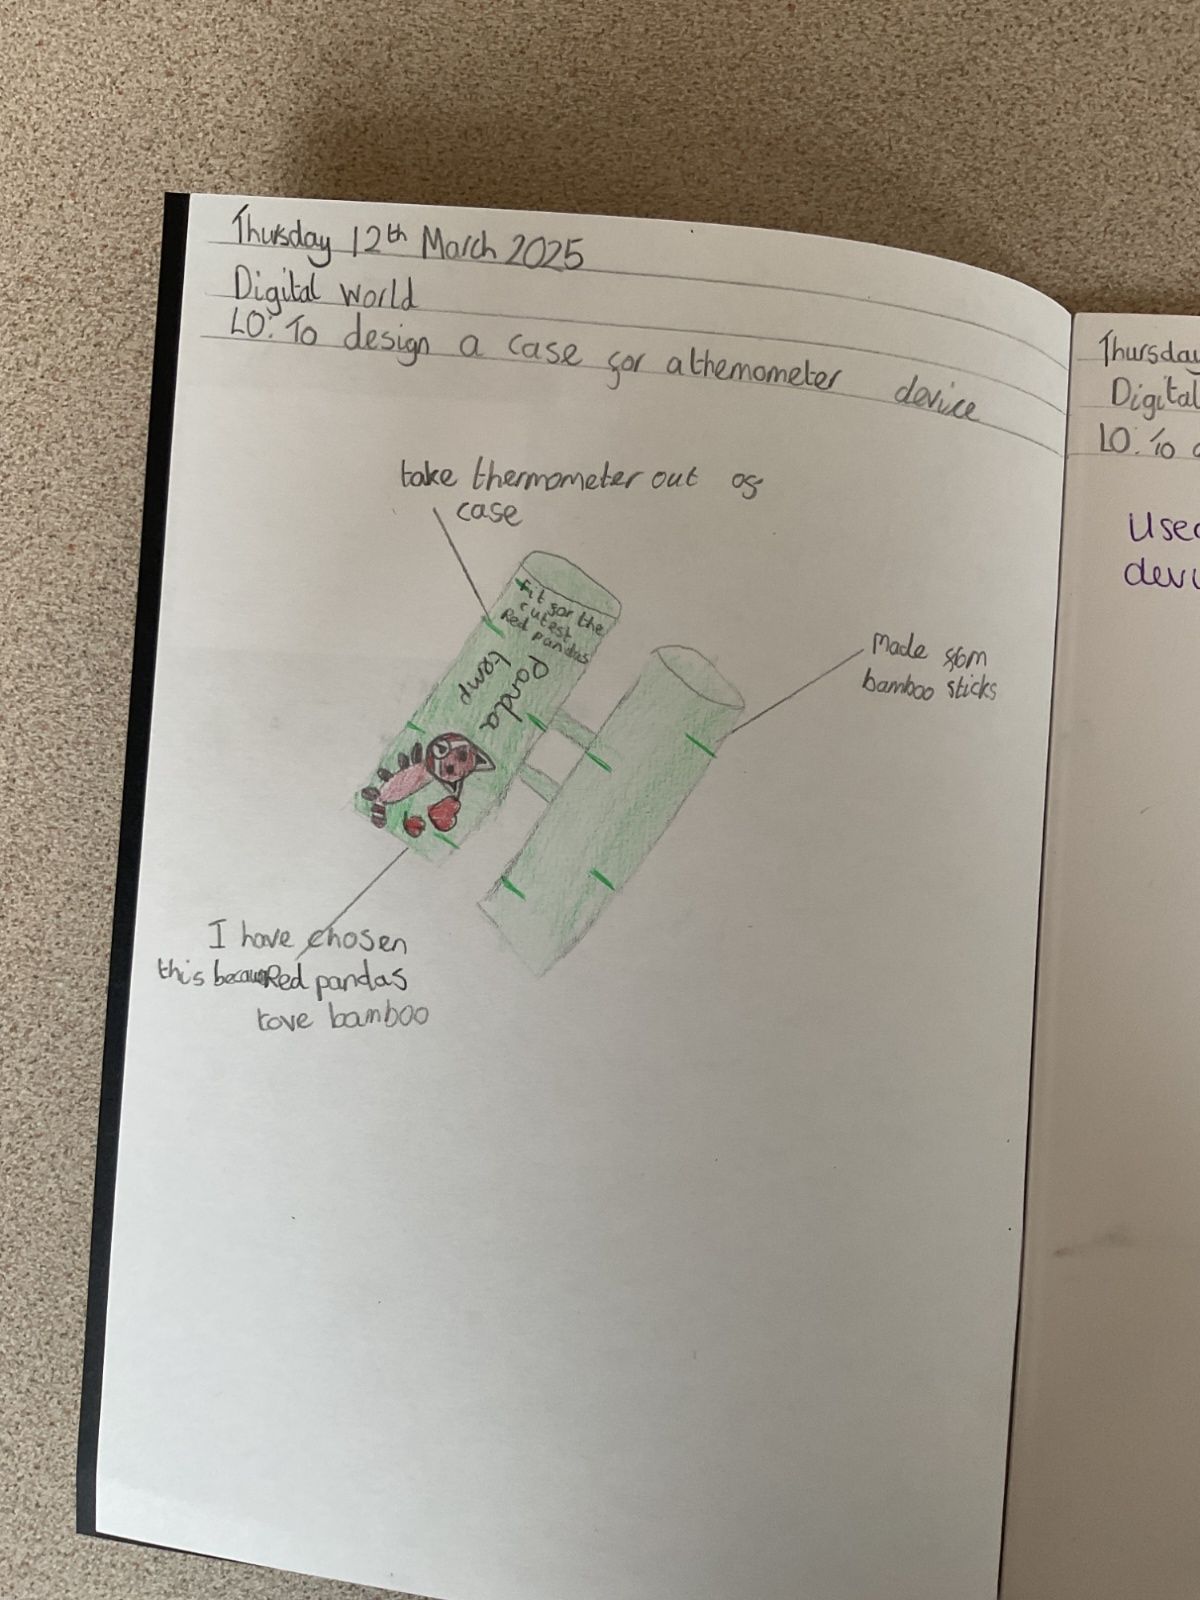 Thursday 12th March 2025
Digital world
LO: To design a case for a themometer device
take thermometer out of
case
Fit for the
cutest
Red pandas
Panda
temp
Made from
bamboo sticks
I have chosen
this because Red pandas
love bamboo
Thursday
Digital
LO: To
Used